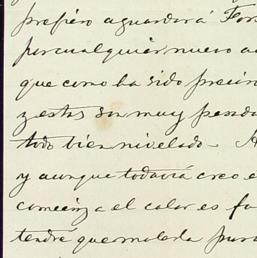 prefiero aguardar á For
por cualquier nuevo ac
que como ha sido preci
y estos son muy pesado
todo bien nivelado - A
y aunque todavía creo e
comienza el calor es fa
tendré que mandarla para